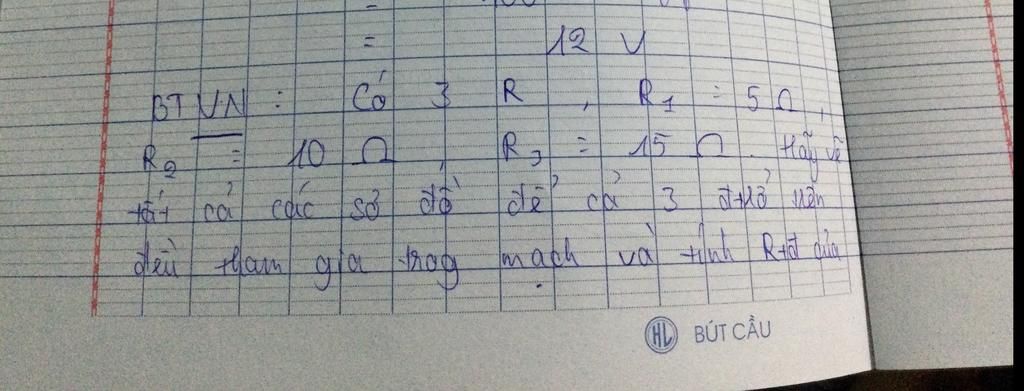 =
= 12 V
BTVN : Có 3 R , R1 = 5 Ω ,
R2 = 10 Ω , R3 = 15 Ω . Hãy vẽ
tất cả các sơ đồ để cả 3 đtrở trên
đều tham gia trog mạch và tính Rtđ của
HL BÚT CẦU